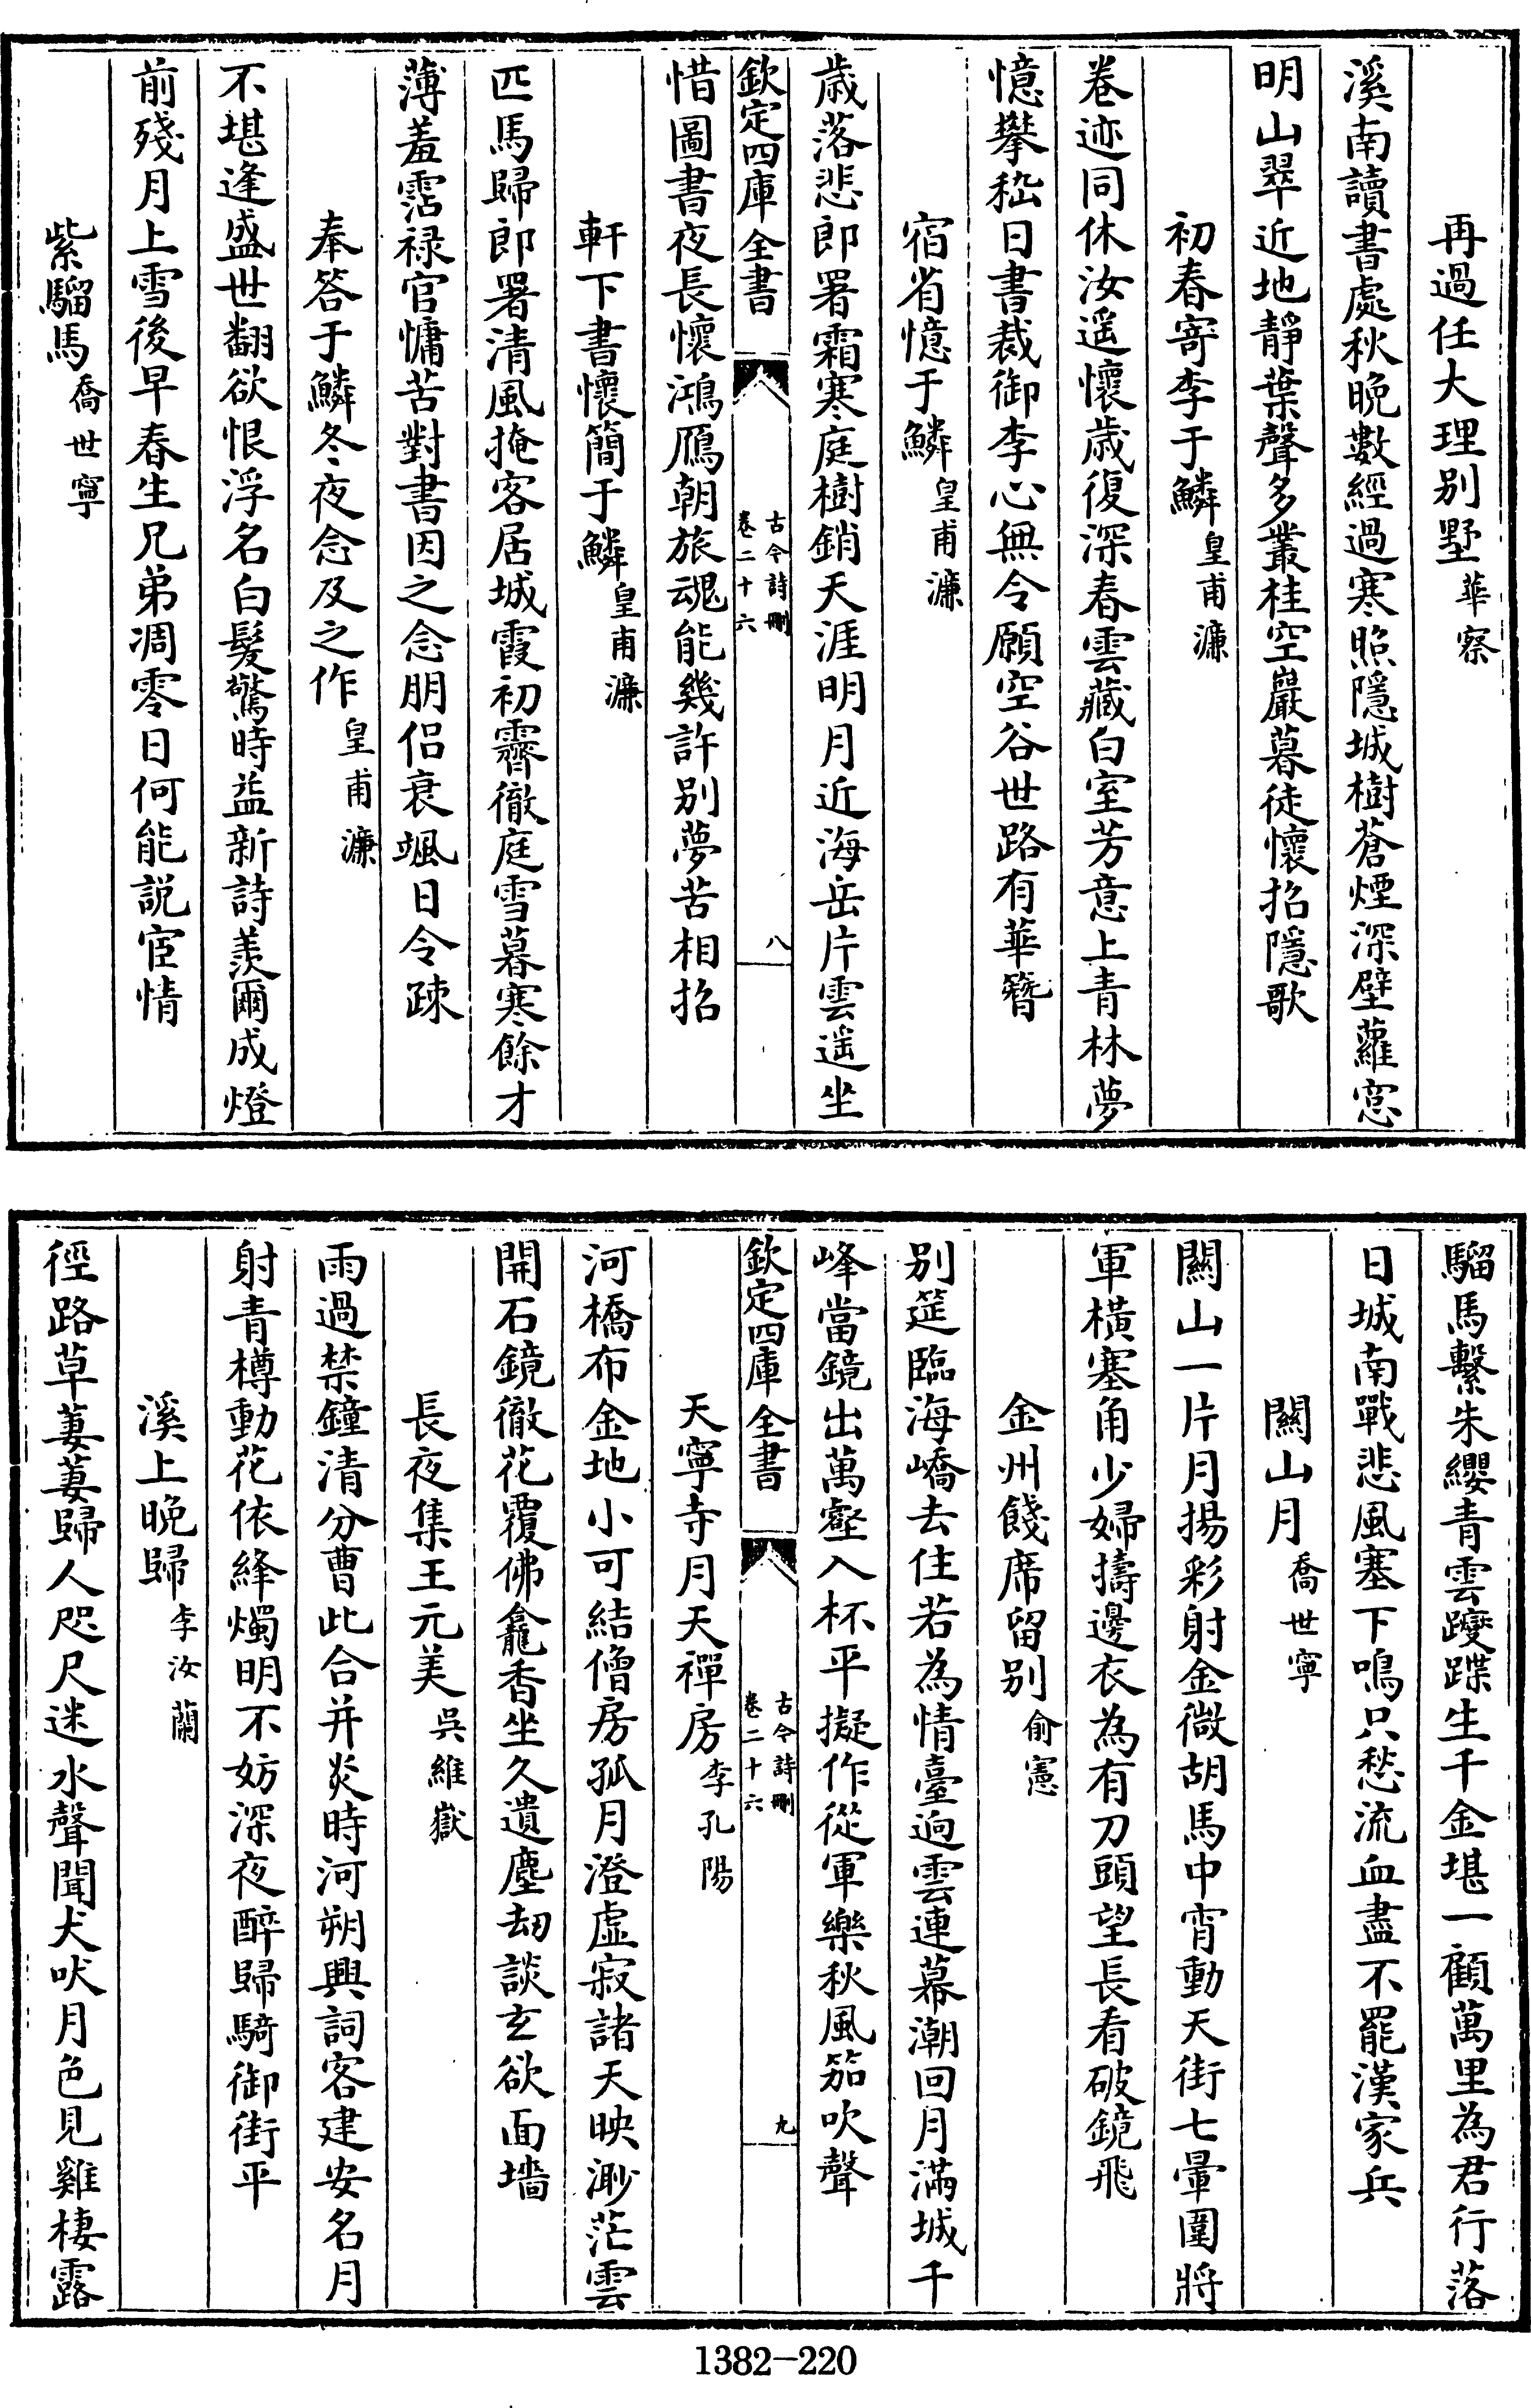 再過任大理别墅華察
溪南讀書處秋晚數經過寒照隱城樹蒼煙深壁蘿窓
明山翠近地靜葉聲多叢桂空巖暮徒懷招隱歌
初春寄李于鱗皇甫濂
卷迹同休汝遥懷歲復深春雲藏白室芳意上青林夢
憶攀嵇日書裁御李心無令願空谷世路有華簪
宿省憶于鱗皇甫濂
歲落悲郎署霜寒庭樹銷天涯明月近海岳片雲遥坐
欽定四庫全書
古今詩刪
卷二十六
八
惜圖書夜長懷鴻鴈朝旅魂能幾許别夢苦相招
軒下書懷簡于鱗皇甫濂
匹馬歸郎署清風掩客居城霞初霽徹庭雪暮寒餘才
薄羞霑禄官慵苦對書因之念朋侣衰颯日令疎
奉答于鱗冬夜念及之作皇甫濂
不堪逢盛世翻欲恨浮名白髮驚時益新詩羨爾成燈
前殘月上雪後早春生兄弟凋零日何能説宦情
紫騮馬喬世寧
騮馬繫朱纓青雲躞蹀生千金堪一顧萬里為君行落
日城南戰悲風塞下鳴只愁流血盡不罷漢家兵
關山月喬世寧
關山一片月揚彩射金微胡馬中宵動天街七暈圍將
軍橫塞角少婦擣邊衣為有刀頭望長看破鏡飛
金州餞席留别俞憲
别筵臨海嶠去住若為情臺迥雲連幕潮回月滿城千
峰當鏡出萬壑入杯平擬作從軍樂秋風笳吹聲
欽定四庫全書
古今詩刪
卷二十六
九
天寧寺月天禪房李孔陽
河橋布金地小可結僧房孤月澄虚寂諸天映渺茫雲
開石鏡徹花覆佛龕香坐久遺塵刼談玄欲面墻
長夜集王元美吳維嶽
雨過禁鐘清分曹此合并炎時河朔興詞客建安名月
射青樽動花依絳燭明不妨深夜醉歸騎御街平
溪上晚歸李汝蘭
徑路草萋萋歸人咫尺迷水聲聞犬吠月色見雞棲露
1382-220